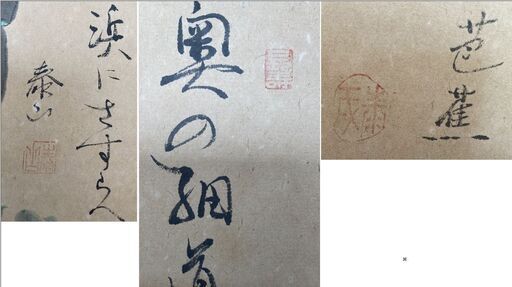 浜にさすらへ
泰山
奥の細道
芭蕉